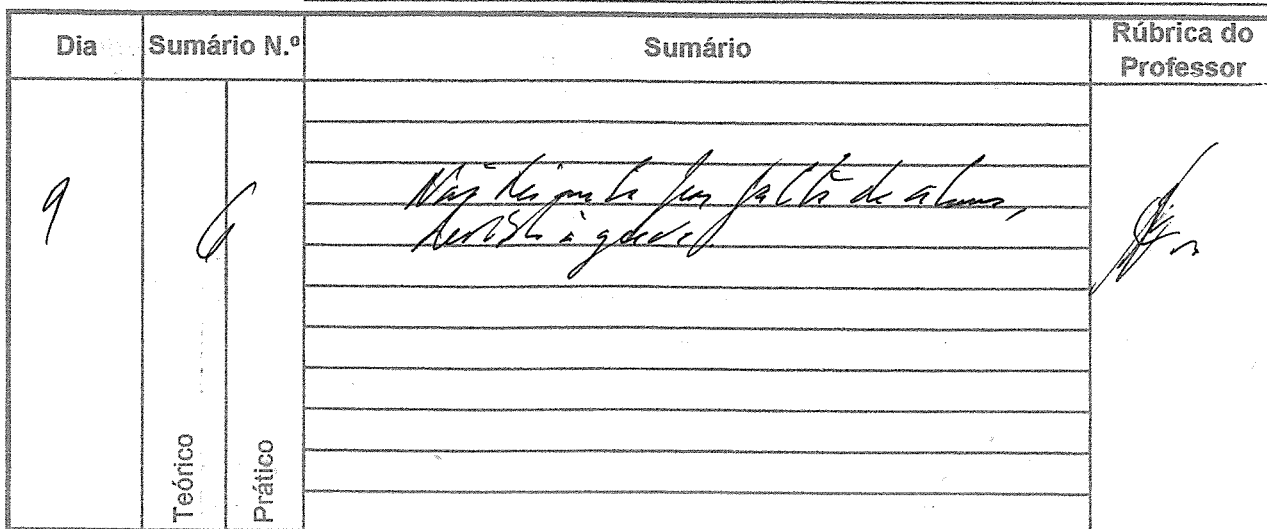 Dia
Sumário N.º
Sumário
Rúbrica do
Professor
9
6
Não por falta de alunos,
devido à greve
Teórico
Prático